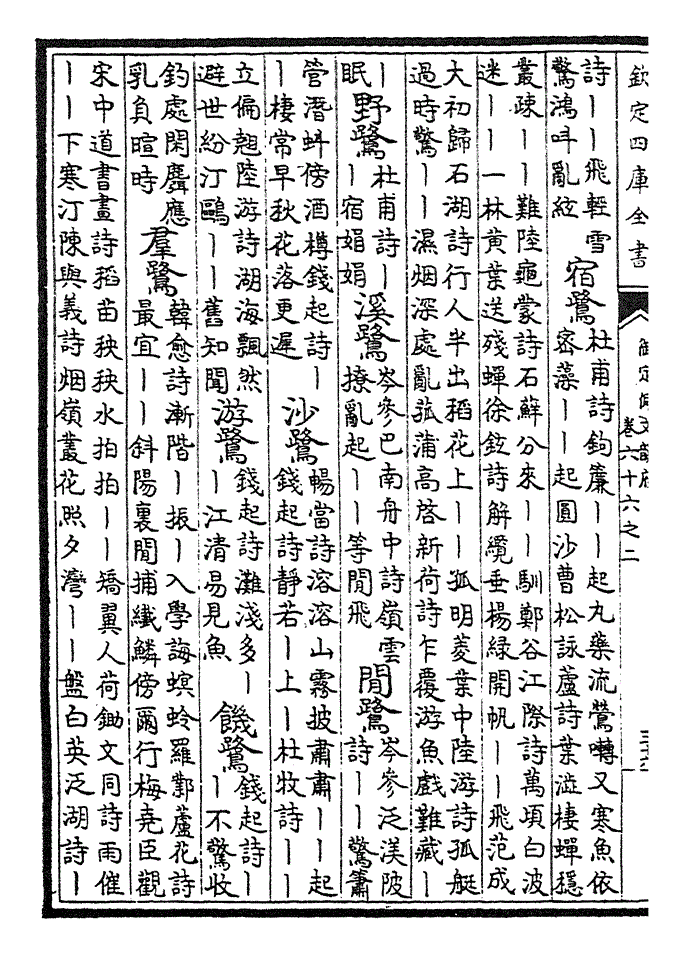 欽定四庫全書
御定佩文韻府
卷六十六之二
詩――飛輕雪
驚鴻叫亂絃
宿鷺
杜甫詩鉤簾――起九藥流鶯囀又寒魚依
密藻――起圓沙曹松詠蘆詩葉澁棲蟬穩
叢疎――難陸龜蒙詩石蘚分來――馴鄭谷江際詩萬頃白波
迷――一林黄葉送殘蟬徐鉉詩解纜垂楊綠開帆――飛范成
大初歸石湖詩行人半出稻花上――孤明菱葉中陸游詩孤艇
過時驚――濕烟深處亂菰蒲高啓新荷詩乍覆游魚戲難藏―
―
眠
野鷺
杜甫詩―
―宿娟娟
溪鷺
岑參巴南舟中詩嶺雲
撩亂起――等閒飛
閒鷺
岑參泛渼陂
詩――驚簫
管潛蚪傍酒樽錢起詩―
―棲常早秋花落更遲
沙鷺
暢當詩溶溶山霧披肅肅――起
錢起詩靜若―上―杜牧詩――
立偏翹陸游詩湖海飄然
避世紛汀鷗――舊知聞
游鷺
錢起詩灘淺多―
―江清易見魚
饑鷺
錢起詩―
―不驚收
釣處閑麏應
乳負暄時
羣鷺
韓愈詩漸階―振―入學誨螟蛉羅鄴蘆花詩
最宜――斜陽裏閒捕纖鱗傍爾行梅堯臣觀
宋中道書畫詩稻苗秧秧水拍拍――矯翼人荷鋤文同詩雨催
――下寒汀陳與義詩烟嶺叢花照夕灣――盤白英泛湖詩―